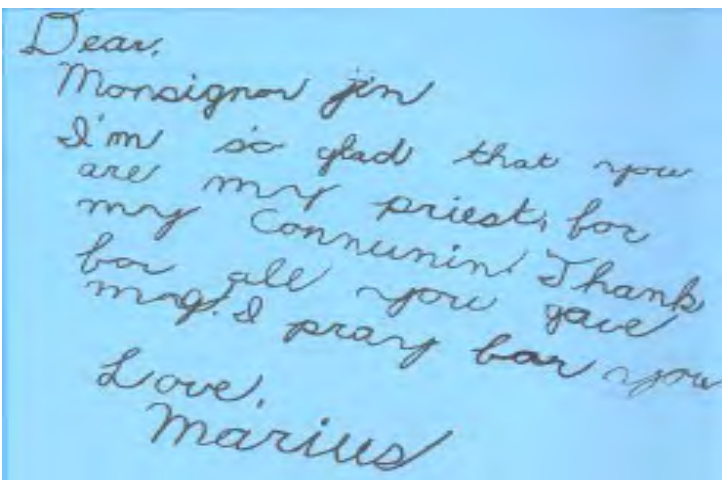 Dear,
Monsignor jin
I'm so glad that you
are my priest, for
my Connunin! Thank
for all you gave
my. I pray for you
Love,
Marius